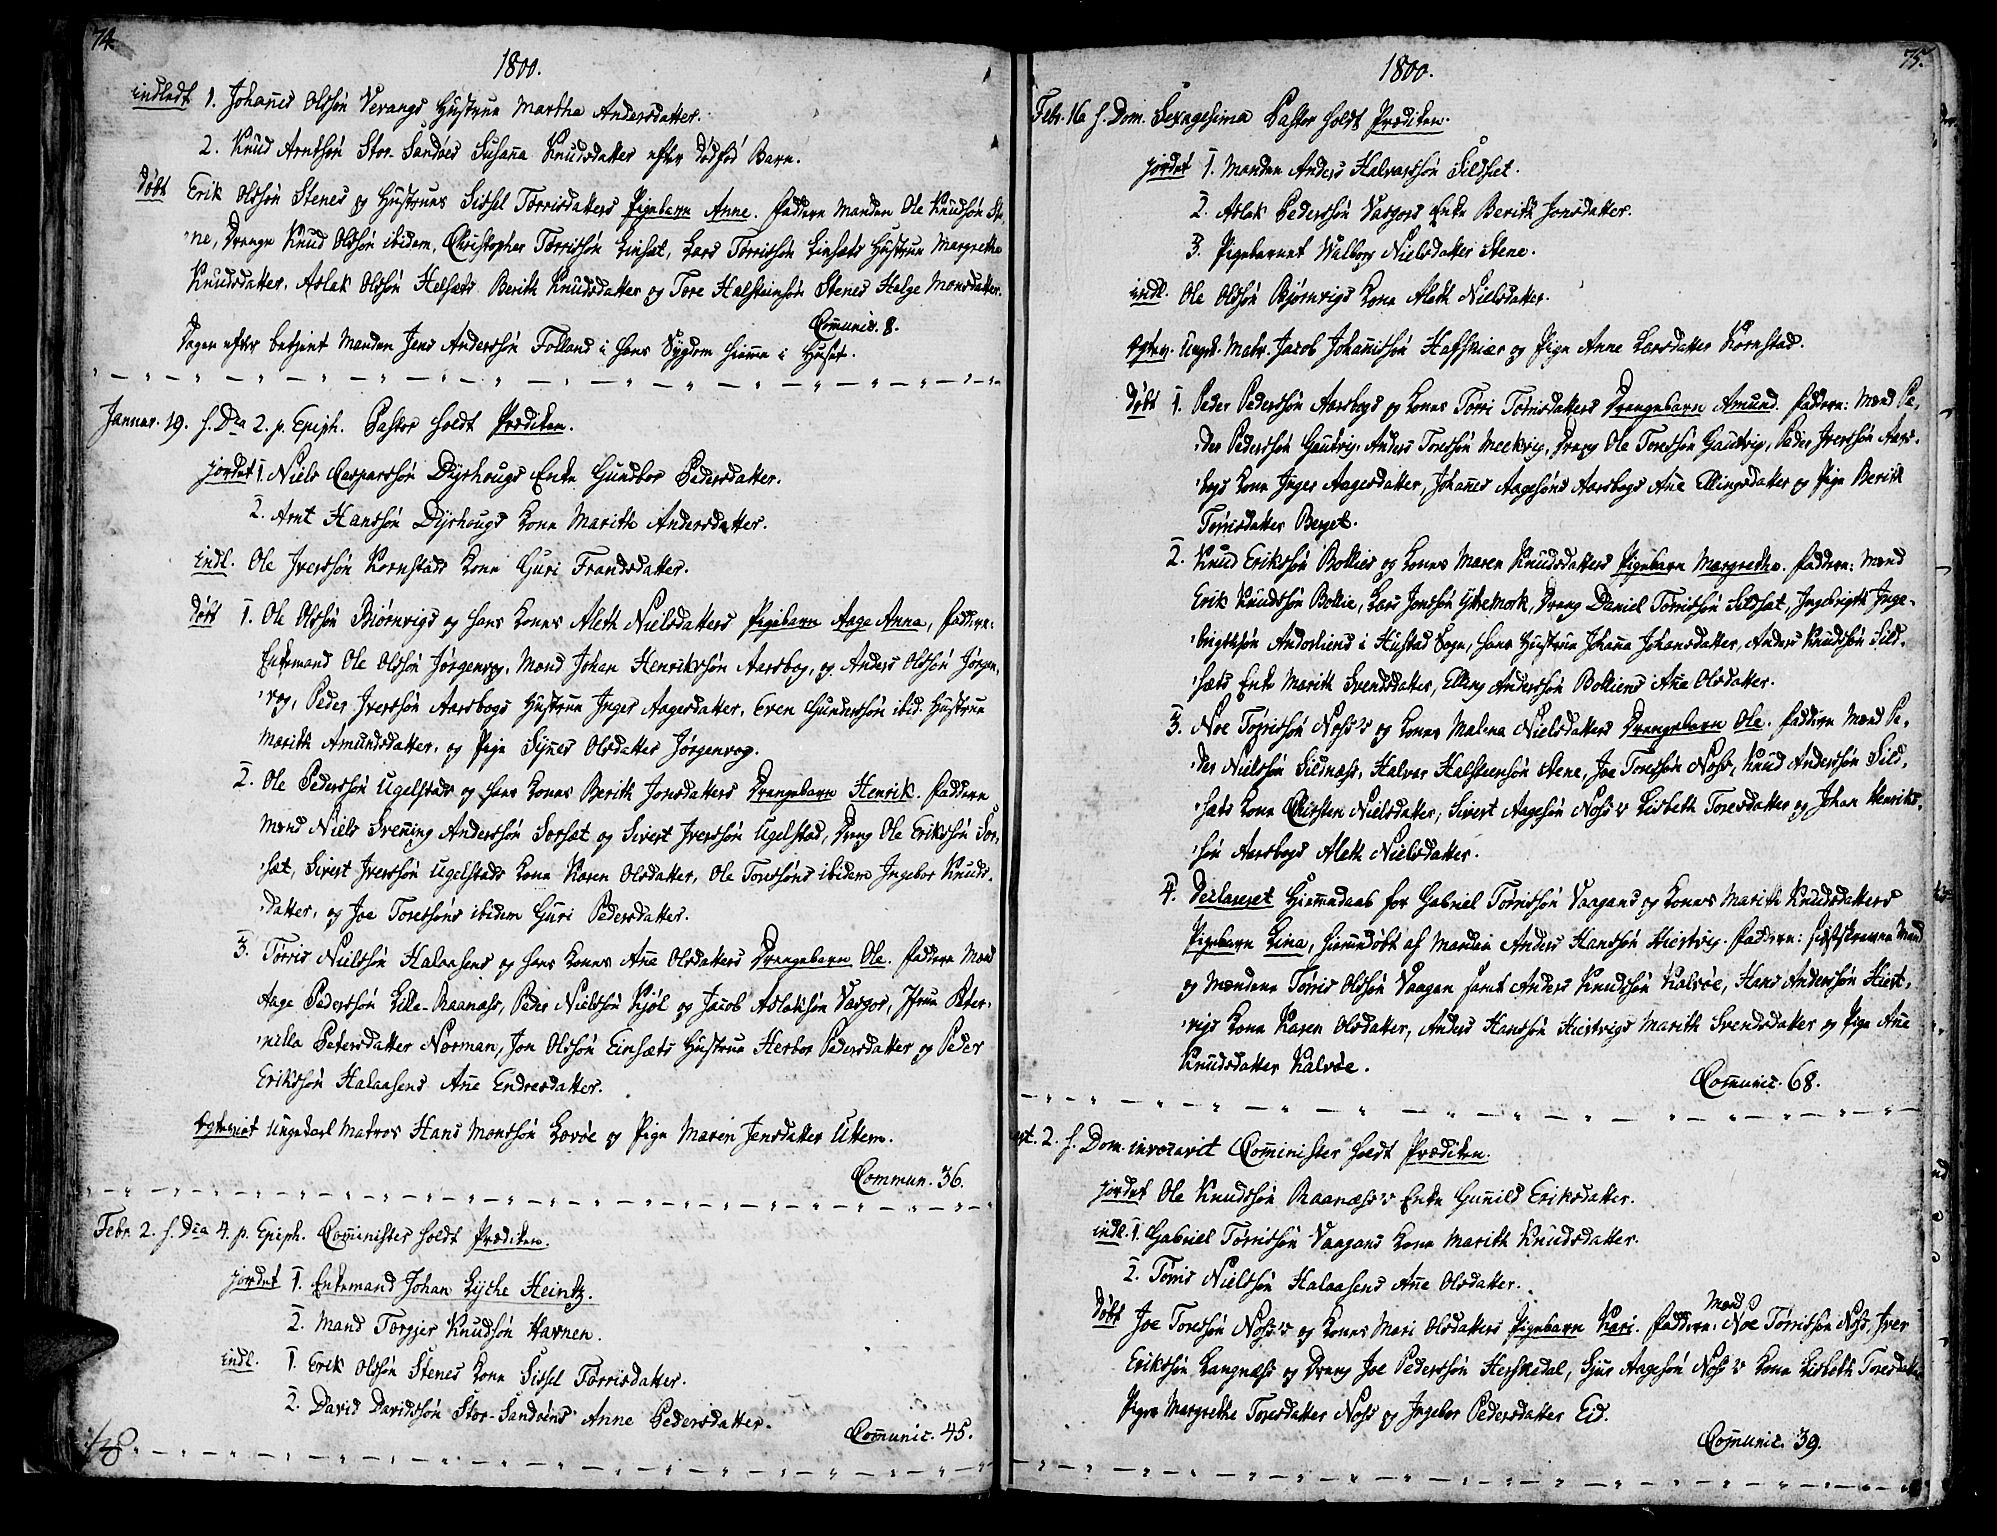 74.
1800.
indledt 1. Johannes Olssøn Verangs Hustrue Martha Andersdatter.
2. Knud Arntsøn Stor-Sandøes Susanna Knudsdatter efter dødfød Barn.
døbt Erik Olssøn Stenes og Hustrues Sissel Tørrisdatters Pigebarn Anne. Faddere Manden Ole Knudsøn Ste-
ne, Dreng Knud Olssøn ibidem, Christopher Tørrissøn Einset, Lars Tørrissøn Einsets Hustrue Margrethe
Knudsdatter. Aslak Olssøn Helsets Berith Knudsdatter og Tore Halsteinsøn Stenes Helge Monsdatter.
Comunic. 8.
Dagen efter betjent Manden Jens Anderssøn Folland i hans Sygdom hiemme i Huset.
Januar. 19. f. Dca 2. p. Epiph. Pastor holdt Prædiken.
jordet 1. Niels Casparssøn Dyrhougs Enke Gundbor Pedersdatter.
2. Arnt Hanssøn Dyrhougs Kone Marith Andersdatter.
indl. Ole Iverssøn Kornstads Kone Guri Frandsdatter.
døbt 1. Ole Olssøn Biørnvigs og hans Kones Aleth Nielsdatters Pigebarn Aage Anna, Faddere:
Enkemand Ole Olssøn Jørgenvog, Mænd Johan Henrikssøn Aarsbog, og Anders Olssøn Jørgen-
vog, Peder Iverssøn Aarsbogs Hustrue Inger Aagesdatter, Even Gunderssøn ibid. Hustrue
Marith Amundsdatter, og Pige Synes Olsdatter Jørgenvog.
2. Ole Pederssøn Ugelstads og hans Kones Berith Jonsdatters Drengebarn Henrik. Faddere
Mænd Niels Svenning Anderssøn Sorset og Sivert Iverssøn Ugelstad, Dreng Ole Erikssøn Sor-
set, Sivert Iverssøn Ugelstads Kone Karen Olsdatter, Ole Toressøns ibidem Ingebor Knuds-
datter, og Joe Toressøns ibidem Guri Pedersdatter.
3. Tørris Nielssøn Halaasens og hans Kones Ane Olsdatters Drengebarn Ole. Faddere Mænd
Aage Pederssøn Lille-Raanæss, Peder Nielssøn Kjøl og Jacob Aslakssøn Vasgor, Jfrue Peter-
nille Petersdatter Norman, Jon Olssøn Einsets Hustrue Herbor Pedersdatter og Peder
Erikssøn Halaasens Ane Endresdatter.
Egteviet Ungekarl Matros Hans Monssøn Lovøe og Pige Maren Jensdatter Uttem.
Commun. 36.
Febr. 2. f. Dca 4. p. Epiph. Cominister holdt Prædiken.
jordet 1. Enkemand Johan Lythe Heintz.
2. Mand Torgjer Knudssøn Havnen.
indl. 1. Erik Olssøn Stenes Kone Sissel Tørrisdatter.
2. David Davidssøn Stor-Sandøens Anne Pedersdatter.
Comunic. 45.
75.
1800.
Febr. 16 f. Dom. Sexagesima Pastor holdt Prædiken.
jordet 1. Manden Anders Halvarssøn Sildset.
2. Aslak Pederssøn Vasgors Enke Berith Jonsdatter.
3. Pigebarnet Walborg Nielsdatter Stene.
indl. Ole Olssøn Bjørnvigs Kone Aleth Nielsdatter.
Egtev. Ungk. Matr. Jacob Johannissøn Hafskier og Pige Anne Larsdatter Kornstad.
døbt 1. Peder Pederssøn Aarsbogs og Kones Tørri Tørrisdatters Drengebarn Amund. Faddere: Mænd Pe-
der Pederssøn Gautvig, Anders Toressøn Meekvig, Dreng Ole Toressøn Gautvig, Peder Iverssøn Aars-
bogs Kone Inger Aagesdatter, Johannes Aagesøns Aarsbogs Ane Ellingsdatter og Pige Berith
Tørrisdatter Berget.
2. Knud Erikssøn Bollies og Kones Maren Knudsdatters Pigebarn Margrethe. Faddere: Mænd
Erik Knudssøn Bollie, Lars Jonssøn Yttremork, Dreng Daniel Tørrissøn Sildset, Ingebrigth Inge-
brigtssøn Andosliens i Hustad Sogn, hans Hustrue Johanna Johansdatter, Anders Knudssøn Sild-
sets Enke Marith Svendsdatter, Elling Anderssøn Bolliens Ane Olsdatter.
3. Noe Tørrissøn Nøss's og Kones Malena Nielsdatters Drengebarn Ole. Faddere Mænd Pe-
der Nielssøn Sildnæss, Halvar Halsteensøn Stene, Joe Toressøn Nøss, Knud Anderssøn Sild-
sets Kone Chirsten Nielsdatter, Sivert Aagesøn Nøss's Lisbeth Toresdatter og Johan Henriks-
søn Aarsbogs Aleth Nielsdatter.
4. Declareret Hiemmedaab for Gabriel Tørrissøn Vaagans og Kones Marith Knudsdatters
Pigebarn Lina, hiemmdøbt af Manden Anders Hanssøn Hiertvig. Faddere: sidstskrevne Mand
og Mændene Tørris Olssøn Vaagan samt Anders Knudssøn Kalvøe, Hans Anderssøn Hiert-
vigs Kone Karen Olsdatter, Anders Hanssøn Hiertvigs Marith Svendsdatter og Pige Ane
Knudsdatter Kalvøe.
Comunic. 68.
2. f. Dom. invocavit Cominister holdt Prædiken.
jordet Ole Knudssøn Raanæss's Enke Gunild Eriksdatter.
indl. 1. Gabriel Tørrissøn Vaagans Kone Marith Knudsdatter.
2. Tørris Nielssøn Halaasens Ane Olsdatter.
døbt Joe Toressøn Nøss's og Kones Mari Olsdatters Pigebarn Kari. Faddere: Mænd Noe Tørrissøn Nøss, Iver
Erikssøn Langnæss og Dreng Joe Pederssøn Herskedal, Sjur Aagesøn Nøss's Kone Lisbeth Toresdatter
Piger Margrethe Toresdatter Nøss og Ingebor Pedersdatter Eid.
Comunic. 39.